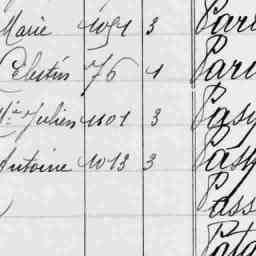 Marie 1051 3 Par
Célestin 76 1 Par
Mie Julien 1101 3 Pasq
Antoine 1013 3 Pasq
Pass
Pata